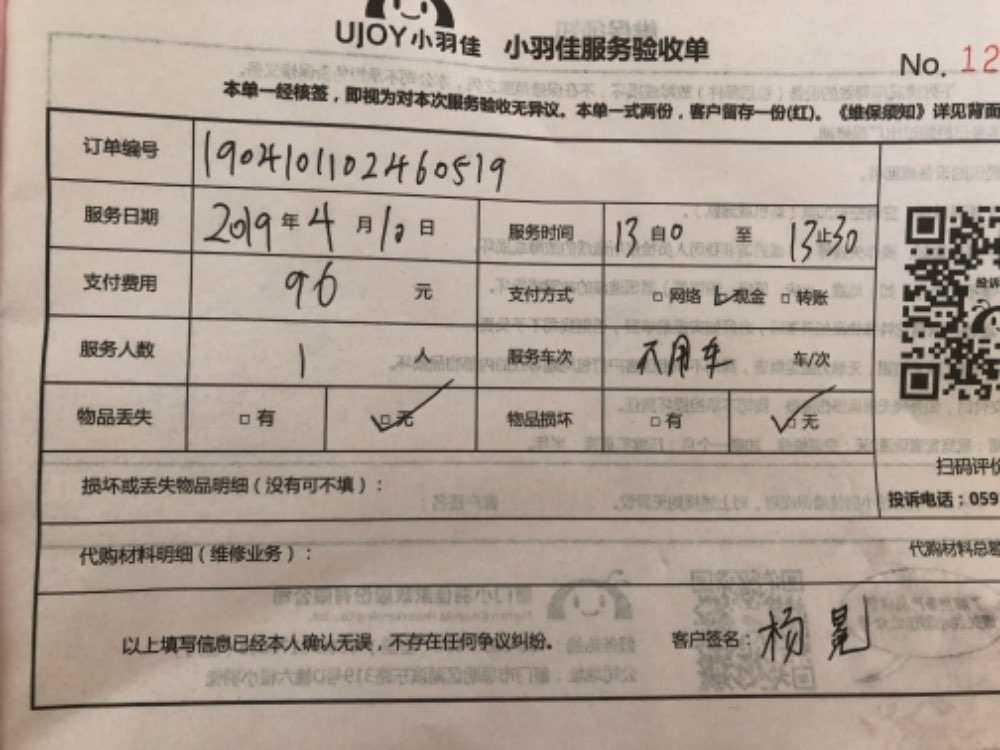 UJOY小羽佳 小羽佳服务验收单
No. 12
本单一经核签，即视为对本次服务验收无异议。本单一式两份，客户留存一份(红)。《维保须知》详见背面
订单编号 1904101102460519
服务日期 2019 年 4 月 10 日 服务时间 13 自 0 至 13 止 30
支付费用 96 元 支付方式 □ 网络 □ 现金 □ 转账
服务人数 1 人 服务车次 不用车 车/次
物品丢失 □ 有 □ 无 物品损坏 □ 有 □ 无
扫码评价
损坏或丢失物品明细（没有可不填）：
投诉电话：059
代购材料明细（维修业务）： 代购材料总额
以上填写信息已经本人确认无误，不存在任何争议纠纷。 客户签名：杨晃